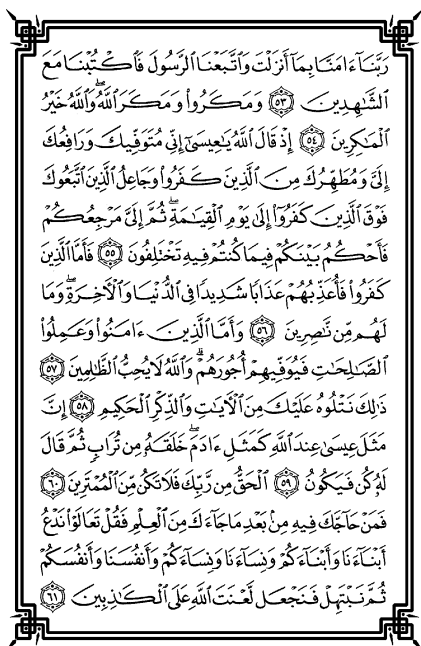 رَبَّنَآ ءَامَنَّا بِمَآ أَنزَلْتَ وَاتَّبَعْنَا الرَّسُولَ فَاكْتُبْنَا مَعَ
الشَّٰهِدِينَ ٥٣ وَمَكَرُوا۟ وَمَكَرَ اللَّهُ ۖ وَاللَّهُ خَيْرُ
الْمَٰكِرِينَ ٥٤ إِذْ قَالَ اللَّهُ يَٰعِيسَىٰٓ إِنِّى مُتَوَفِّيكَ وَرَافِعُكَ
إِلَىَّ وَمُطَهِّرُكَ مِنَ الَّذِينَ كَفَرُوا۟ وَجَاعِلُ الَّذِينَ اتَّبَعُوكَ
فَوْقَ الَّذِينَ كَفَرُوٓا۟ إِلَىٰ يَوْمِ الْقِيَٰمَةِ ۖ ثُمَّ إِلَىَّ مَرْجِعُكُمْ
فَأَحْكُمُ بَيْنَكُمْ فِيمَا كُنتُمْ فِيهِ تَخْتَلِفُونَ ٥٥ فَأَمَّا الَّذِينَ
كَفَرُوا۟ فَأُعَذِّبُهُمْ عَذَابًا شَدِيدًا فِى الدُّنْيَا وَالْءَاخِرَةِ ۖ وَمَا
لَهُم مِّن نَّٰصِرِينَ ٥٦ وَأَمَّا الَّذِينَ ءَامَنُوا۟ وَعَمِلُوا۟
الصَّٰلِحَٰتِ فَيُوَفِّيهِمْ أُجُورَهُمْ ۗ وَاللَّهُ لَا يُحِبُّ الظَّٰلِمِينَ ٥٧
ذَٰلِكَ نَتْلُوهُ عَلَيْكَ مِنَ الْءَايَٰتِ وَالذِّكْرِ الْحَكِيمِ ٥٨ إِنَّ
مَثَلَ عِيسَىٰ عِندَ اللَّهِ كَمَثَلِ ءَادَمَ ۖ خَلَقَهُۥ مِن تُرَابٍ ثُمَّ قَالَ
لَهُۥ كُن فَيَكُونُ ٥٩ الْحَقُّ مِن رَّبِّكَ فَلَا تَكُن مِّنَ الْمُمْتَرِينَ ٦٠
فَمَنْ حَآجَّكَ فِيهِ مِنۢ بَعْدِ مَا جَآءَكَ مِنَ الْعِلْمِ فَقُلْ تَعَالَوْا۟ نَدْعُ
أَبْنَآءَنَا وَأَبْنَآءَكُمْ وَنِسَآءَنَا وَنِسَآءَكُمْ وَأَنفُسَنَا وَأَنفُسَكُمْ
ثُمَّ نَبْتَهِلْ فَنَجْعَل لَّعْنَتَ اللَّهِ عَلَى الْكَٰذِبِينَ ٦١